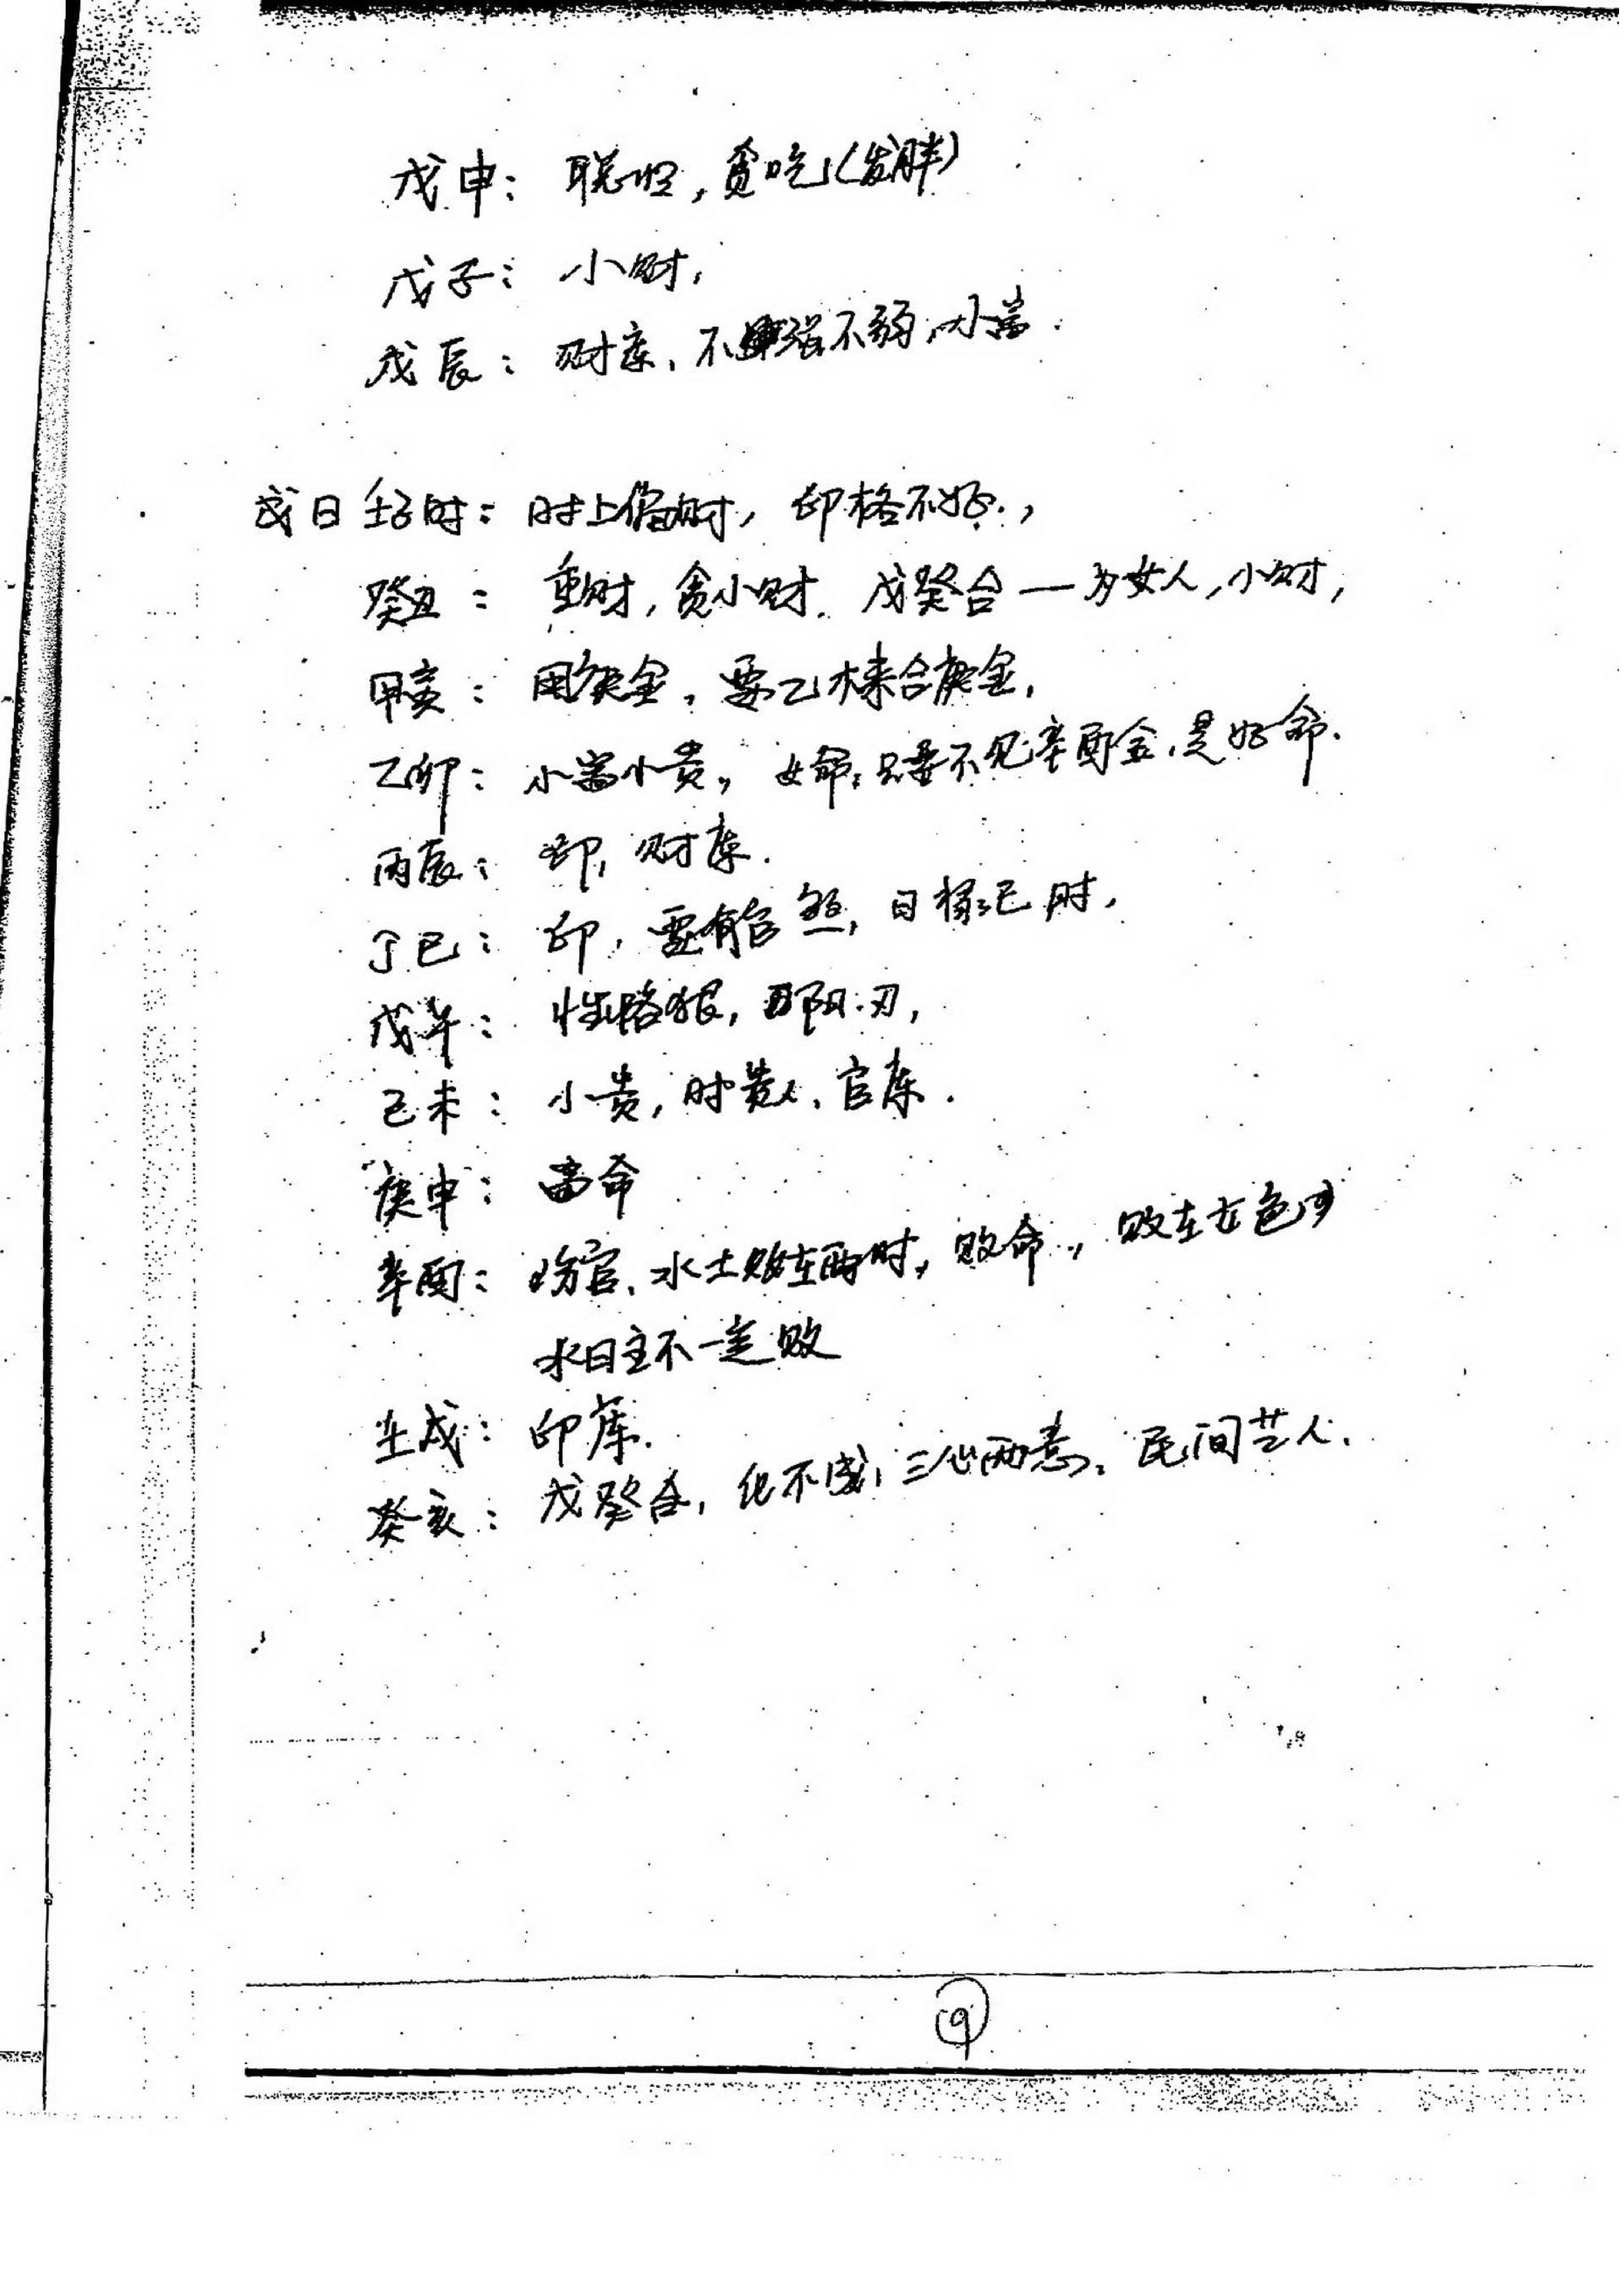 戊申：聪明，贪吃（发胖）
戊子：小财，
戊辰：财库、不强不弱，小富．
戊日壬子时：时上偏财，印格不好．，
癸丑：重财，贪小财．戊癸合一为女人，小财，
甲寅：用庚金，要乙木来合庚金，
乙卯：小富小贵，女命，只要不见辛酉金，是好命．
丙辰：印，财库．
丁巳：印，要有官煞，日禄巳时，
戊午：性格狠，阳刃，
己未：小贵，时贵人、官库．
庚申：富命
辛酉：伤官、水土败在酉时，败命，败在女色
水日主不一定败
壬戌：印库．
癸亥：戊癸合，化不成，三心两意、民间艺人．
9